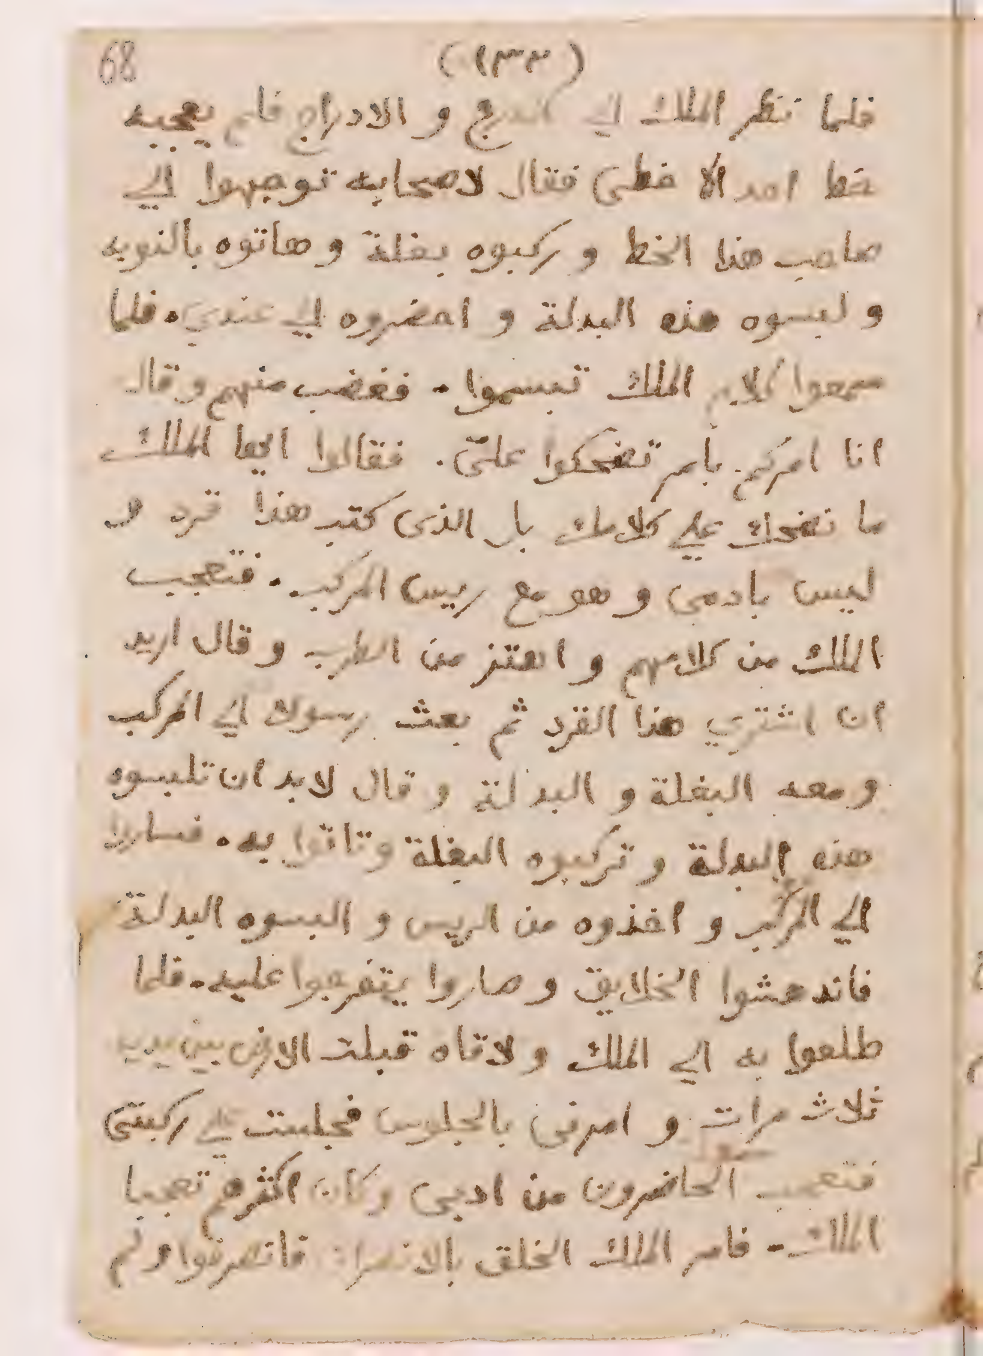 68
(١٣٣)
فلما نظر الملك الي الدرج و الادراج فلم يعجبه
خط احد الا خطى فقال لاصحابه توجهوا الي
صاحب هذا الخط و ركبوه بغلة و هاتوه بالنوبه
و لبسوه هذه البدلة و احضروه الي عندي. فلما
سمعوا كلام الملك تبسموا. فغضب منهم وقال
انا امركم بامر تضحكوا علىّ. فقالوا ايها الملك
ما نضحك علي كلامك بل الذى كتب هذا قرد و
ليس بادمى و هو مع ريس المركب. فتعجب
الملك من كلامهم و اهتز من الطرب و قال اريد
ان اشتري هذا القرد ثم بعث رسولا الي المركب
ومعه البغلة و البدلة و قال لابد ان تلبسوه
هذه البدلة و تركبوه البغلة وتاتوا به. فساروا
الي المركب و اخذوه من الريس و البسوه البدلة
فاندهشوا الخلايق و صاروا يتفرجوا عليه. فلما
طلعوا به الي الملك و لاقاه قبلت الارض بين يديه
ثلاث مرات و امرنى بالجلوس فجلست علي ركبتى
فتعجب الحاضرون من ادبى وكان اكثرهم تعجبا
الملك. فامر الملك الخلق بالانصراف فانصرفوا ولم